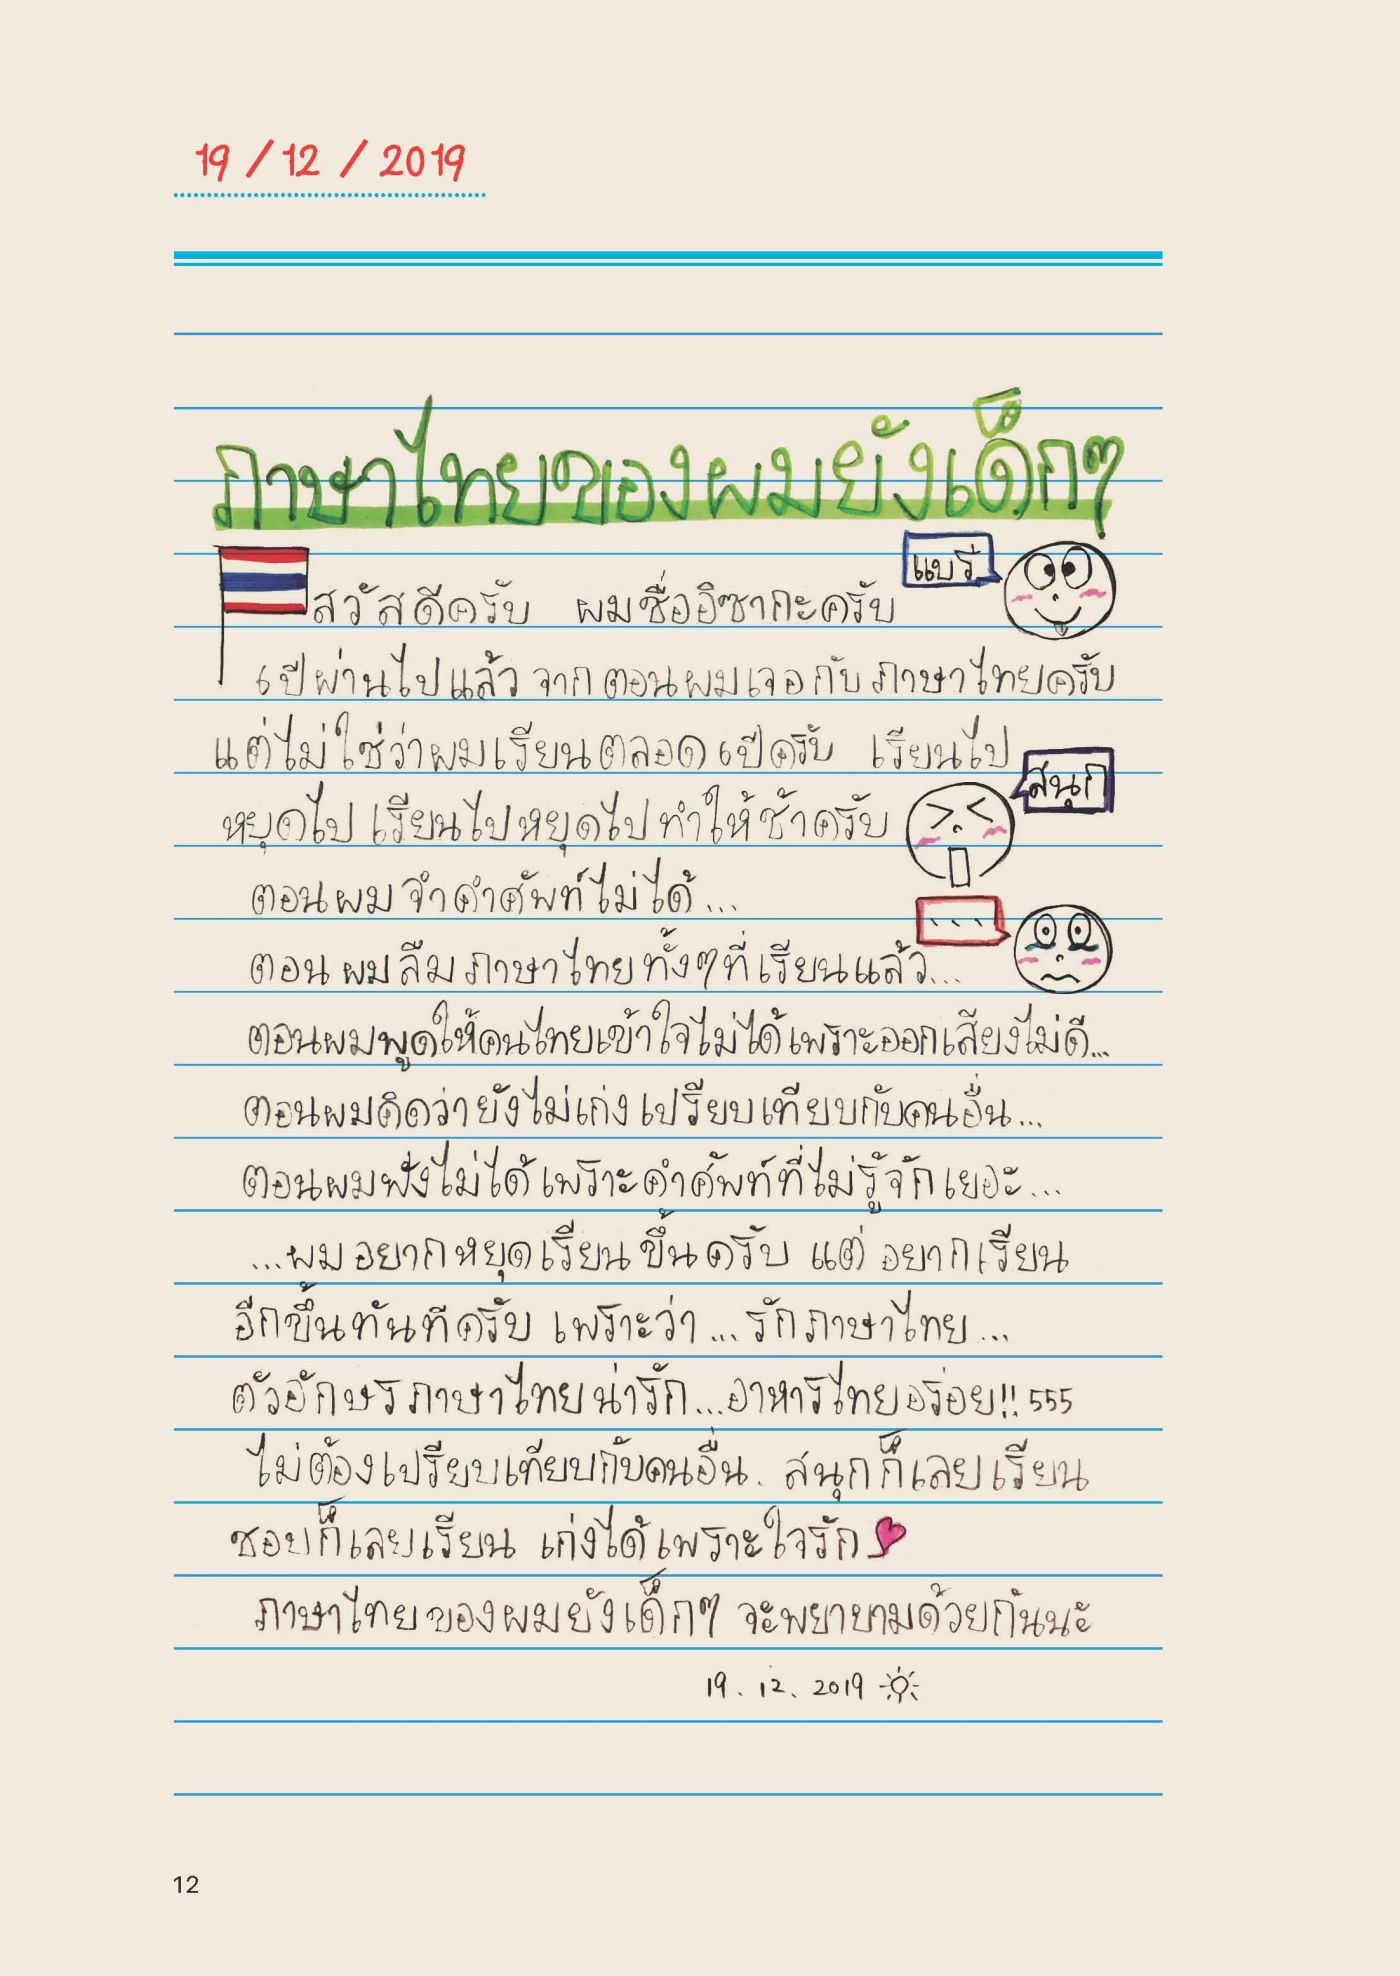 19 / 12 / 2019
ภาษาไทยของผมยังเด็กๆ
แบร่
สวัสดีครับ ผมชื่ออิซากะครับ
6 ปีผ่านไปแล้ว จากตอนผมเจอกับภาษาไทยครับ
แต่ไม่ใช่ว่าผมเรียนตลอด 6 ปีครับ เรียนไป
สนุก
หยุดไป เรียนไปหยุดไป ทำให้ช้าครับ
ตอนผมจำคำศัพท์ไม่ได้...
....
ตอนผมลืมภาษาไทยทั้งๆที่เรียนแล้ว...
ตอนผมพูดให้คนไทยเข้าใจไม่ได้เพราะออกเสียงไม่ดี...
ตอนผมคิดว่ายังไม่เก่งเปรียบเทียบกับคนอื่น...
ตอนผมฟังไม่ได้เพราะคำศัพท์ที่ไม่รู้จักเยอะ...
...ผมอยากหยุดเรียนขึ้นครับ แต่ อยากเรียน
อีกขึ้นทันทีครับ เพราะว่า ... รักภาษาไทย ...
ตัวอักษรภาษาไทยน่ารัก...อาหารไทยอร่อย!! 555
ไม่ต้องเปรียบเทียบกับคนอื่น. สนุกก็เลยเรียน
ชอบก็เลยเรียน เก่งได้เพราะใจรัก
ภาษาไทยของผมยังเด็กๆ จะพยายามด้วยกันนะ
19. 12. 2019
12